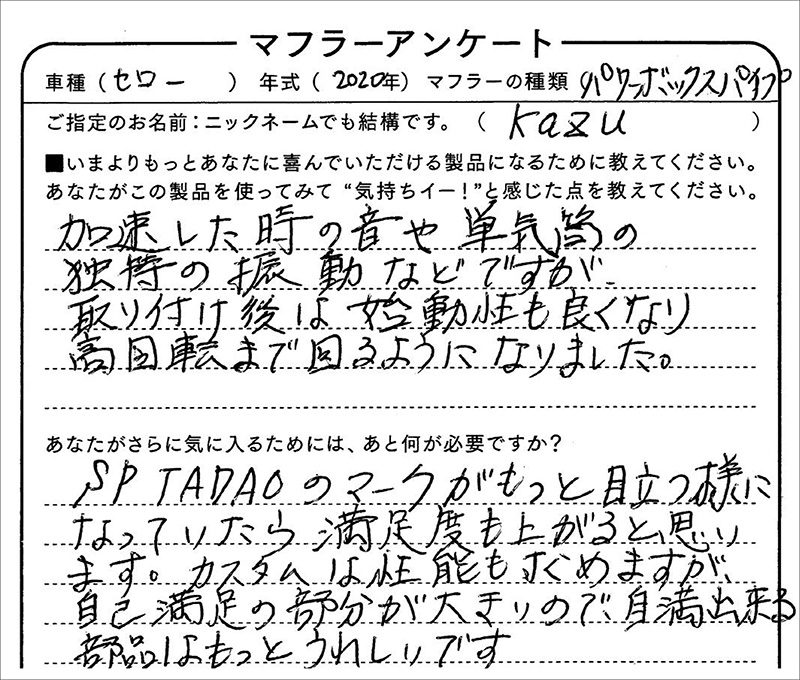 マフラーアンケート
車種（セロー　）年式（2020年）マフラーの種類（パワーボックスパイプ
ご指定のお名前：ニックネームでも結構です。（ kazu ）
■いまよりもっとあなたに喜んでいただける製品になるために教えてください。
あなたがこの製品を使ってみて“気持ちイー！”と感じた点を教えてください。
加速した時の音や単気筒の
独特の振動などですが、
取り付け後は始動性も良くなり
高回転まで回るようになりました。
あなたがさらに気に入るためには、あと何が必要ですか？
SP TADAOのマークがもっと目立つ様に
なっていたら満足度も上がると思い
ます。カスタムは性能もすぐめますが、
自己満足の部分が大きいので、自満出来る
部品はもっとうれしいです